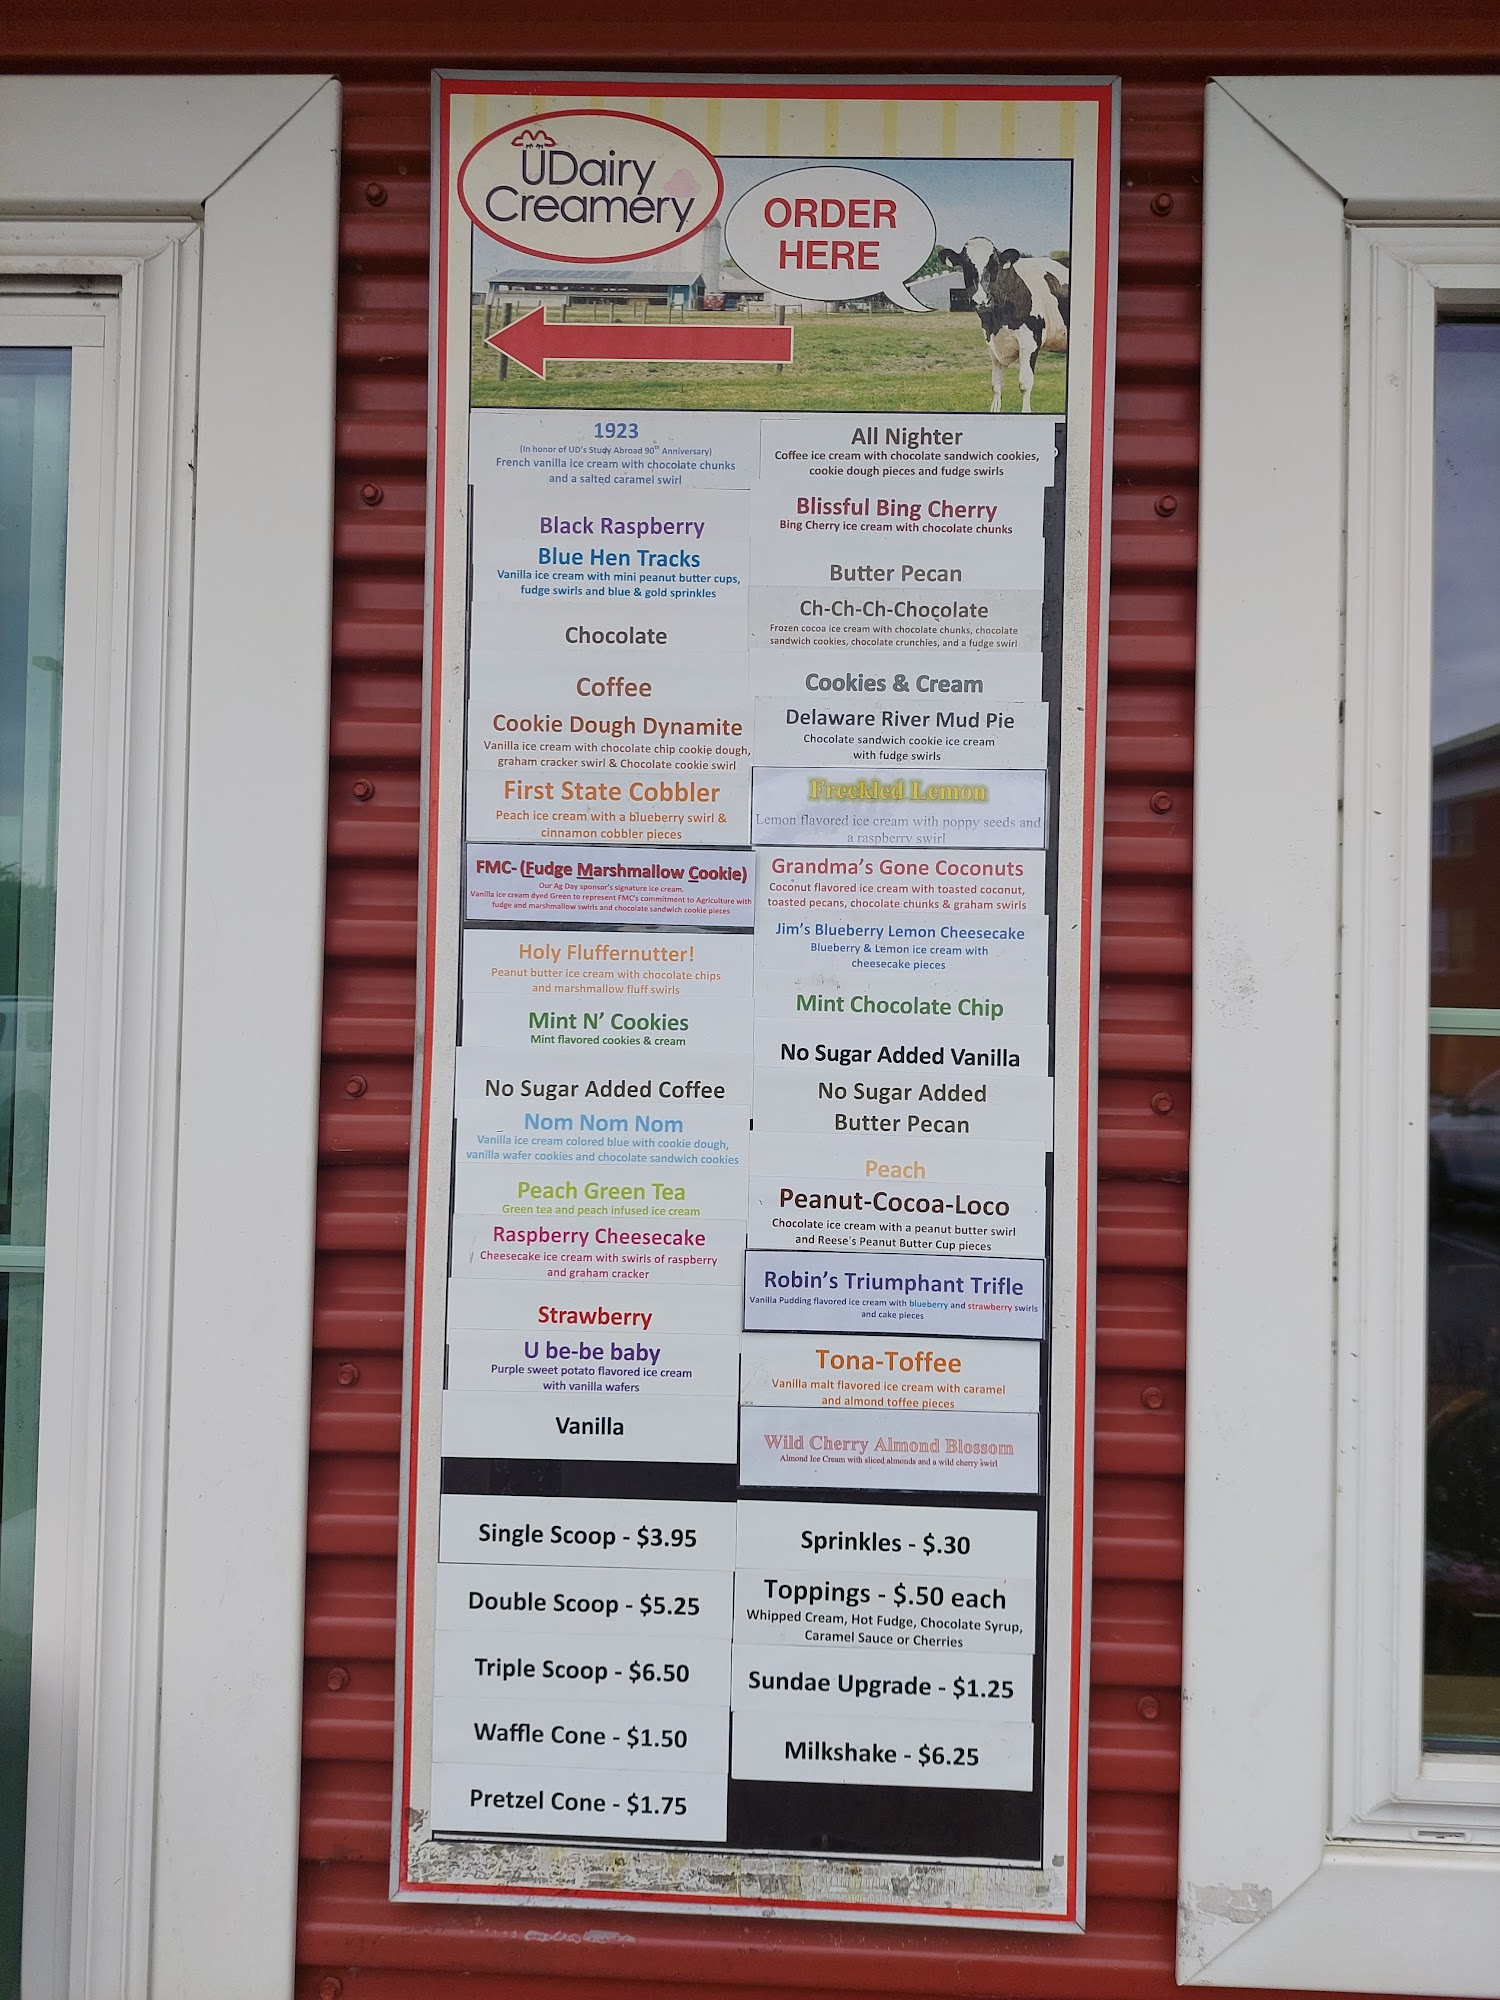 UDairy
Creamery
ORDER
HERE
1923
(In honor of UD's Study Abroad 90th Anniversary)
French vanilla ice cream with chocolate chunks
and a salted caramel swirl
Black Raspberry
Blue Hen Tracks
Vanilla ice cream with mini peanut butter cups,
fudge swirls and blue & gold sprinkles
Chocolate
Coffee
Cookie Dough Dynamite
Vanilla ice cream with chocolate chip cookie dough,
graham cracker swirl & Chocolate cookie swirl
First State Cobbler
Peach ice cream with a blueberry swirl &
cinnamon cobbler pieces
FMC- (Fudge Marshmallow Cookie)
Our Ag Day sponsor's signature ice cream.
Vanilla ice cream dyed Green to represent FMC's commitment to Agriculture with
fudge and marshmallow swirls and chocolate sandwich cookie pieces
Holy Fluffernutter!
Peanut butter ice cream with chocolate chips
and marshmallow fluff swirls
Mint N' Cookies
Mint flavored cookies & cream
No Sugar Added Coffee
Nom Nom Nom
Vanilla ice cream colored blue with cookie dough,
vanilla wafer cookies and chocolate sandwich cookies
Peach Green Tea
Green tea and peach infused ice cream
Raspberry Cheesecake
Cheesecake ice cream with swirls of raspberry
and graham cracker
Strawberry
U be-be baby
Purple sweet potato flavored ice cream
with vanilla wafers
Vanilla
All Nighter
Coffee ice cream with chocolate sandwich cookies,
cookie dough pieces and fudge swirls
Blissful Bing Cherry
Bing Cherry ice cream with chocolate chunks
Butter Pecan
Ch-Ch-Ch-Chocolate
Frozen cocoa ice cream with chocolate chunks, chocolate
sandwich cookies, chocolate crunchies, and a fudge swirl
Cookies & Cream
Delaware River Mud Pie
Chocolate sandwich cookie ice cream
with fudge swirls
Freckled Lemon
Lemon flavored ice cream with poppy seeds and
a raspberry swirl
Grandma's Gone Coconuts
Coconut flavored ice cream with toasted coconut,
toasted pecans, chocolate chunks & graham swirls
Jim's Blueberry Lemon Cheesecake
Blueberry & Lemon ice cream with
cheesecake pieces
Mint Chocolate Chip
No Sugar Added Vanilla
No Sugar Added
Butter Pecan
Peach
Peanut-Cocoa-Loco
Chocolate ice cream with a peanut butter swirl
and Reese's Peanut Butter Cup pieces
Robin's Triumphant Trifle
Vanilla Pudding flavored ice cream with blueberry and strawberry swirls
and cake pieces
Tona-Toffee
Vanilla malt flavored ice cream with caramel
and almond toffee pieces
Wild Cherry Almond Blossom
Almond Ice Cream with sliced almonds and a wild cherry swirl
Single Scoop - $3.95
Double Scoop - $5.25
Triple Scoop - $6.50
Waffle Cone - $1.50
Pretzel Cone - $1.75
Sprinkles - $.30
Toppings - $.50 each
Whipped Cream, Hot Fudge, Chocolate Syrup,
Caramel Sauce or Cherries
Sundae Upgrade - $1.25
Milkshake - $6.25